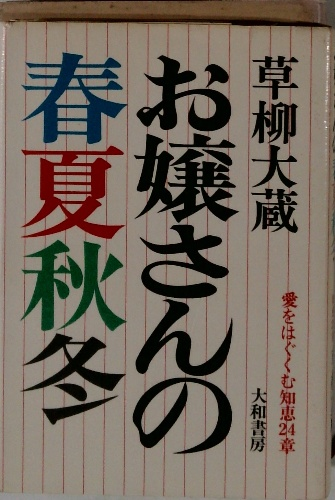 草柳大蔵
愛をはぐくむ知恵24章
大和書房
お嬢さんの
春夏秋冬